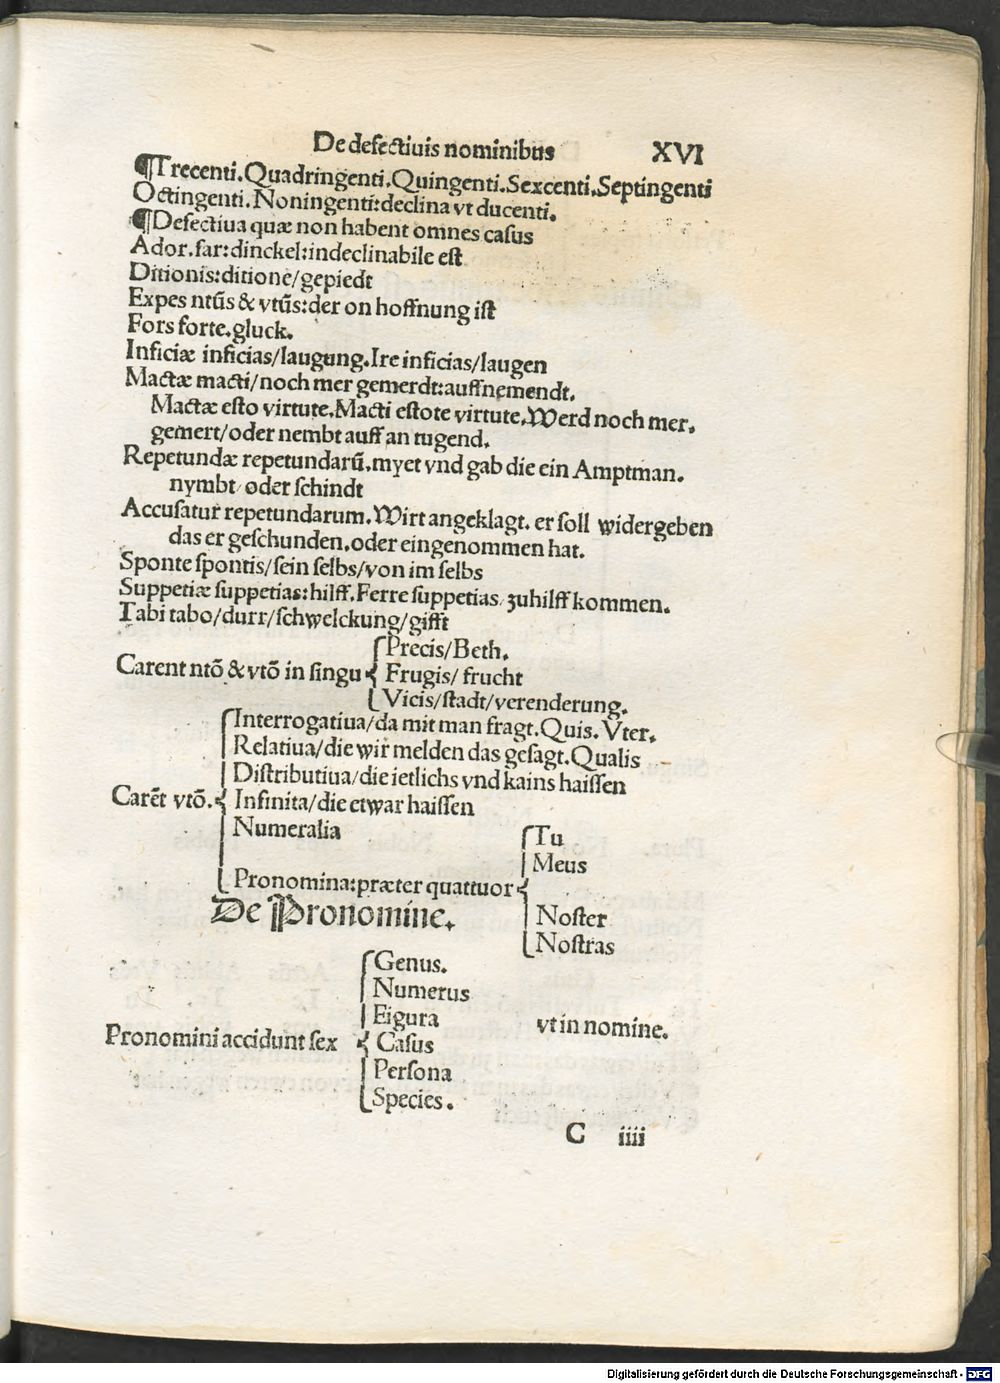 De defectiuis nominibus XVI
¶Trecenti.Quadringenti.Quingenti.Sexcenti.Septingenti
Octingenti.Noningenti:declina vt ducenti.
¶Defectiua quæ non habent omnes caſus
Ador.far:dinckel:indeclinabile eſt
Ditionis:ditione/gepiedt
Expes ntūs & vtūs:der on hoffnung iſt
Fors forte.gluck.
Inficiæ inficias/laugung.Ire inficias/laugen
Mactæ macti/noch mer gemerdt:auffnemendt.
Mactæ eſto virtute.Macti eſtote virtute.Werd noch mer.
gemert/oder nembt auff an tugend.
Repetundæ repetundarū.myet vnd gab die ein Amptman.
nymbt oder ſchindt
Accuſatur repetundarum.Wirt angeklagt. er ſoll widergeben
das er geſchunden.oder eingenommen hat.
Sponte ſpontis/ſein ſelbs/von im ſelbs
Suppetiæ ſuppetias:hilff.Ferre ſuppetias zuhilff kommen.
Tabi tabo/durr/ſchwelckung/gifft
Precis/Beth.
Carent ntō & vtō in ſingu Frugis/ frucht
Vicis/ſtadt/verenderung.
Interrogatiua/da mit man fragt.Quis. Vter.
Relatiua/die wir melden das geſagt.Qualis
Diſtributiua/die ietlichs vnd kains haiſſen
Carēt vtō. Infinita/die etwar haiſſen
Numeralia
Tu
Meus
Pronomina:præter quattuor
Noſter
Noſtras
De Pronomine.
Genus.
Numerus
Figura
vt in nomine.
Pronomini accidunt ſex Caſus
Perſona
Species.
C iiii
Digitalisierung gefördert durch die Deutsche Forschungsgemeinschaft - DFG